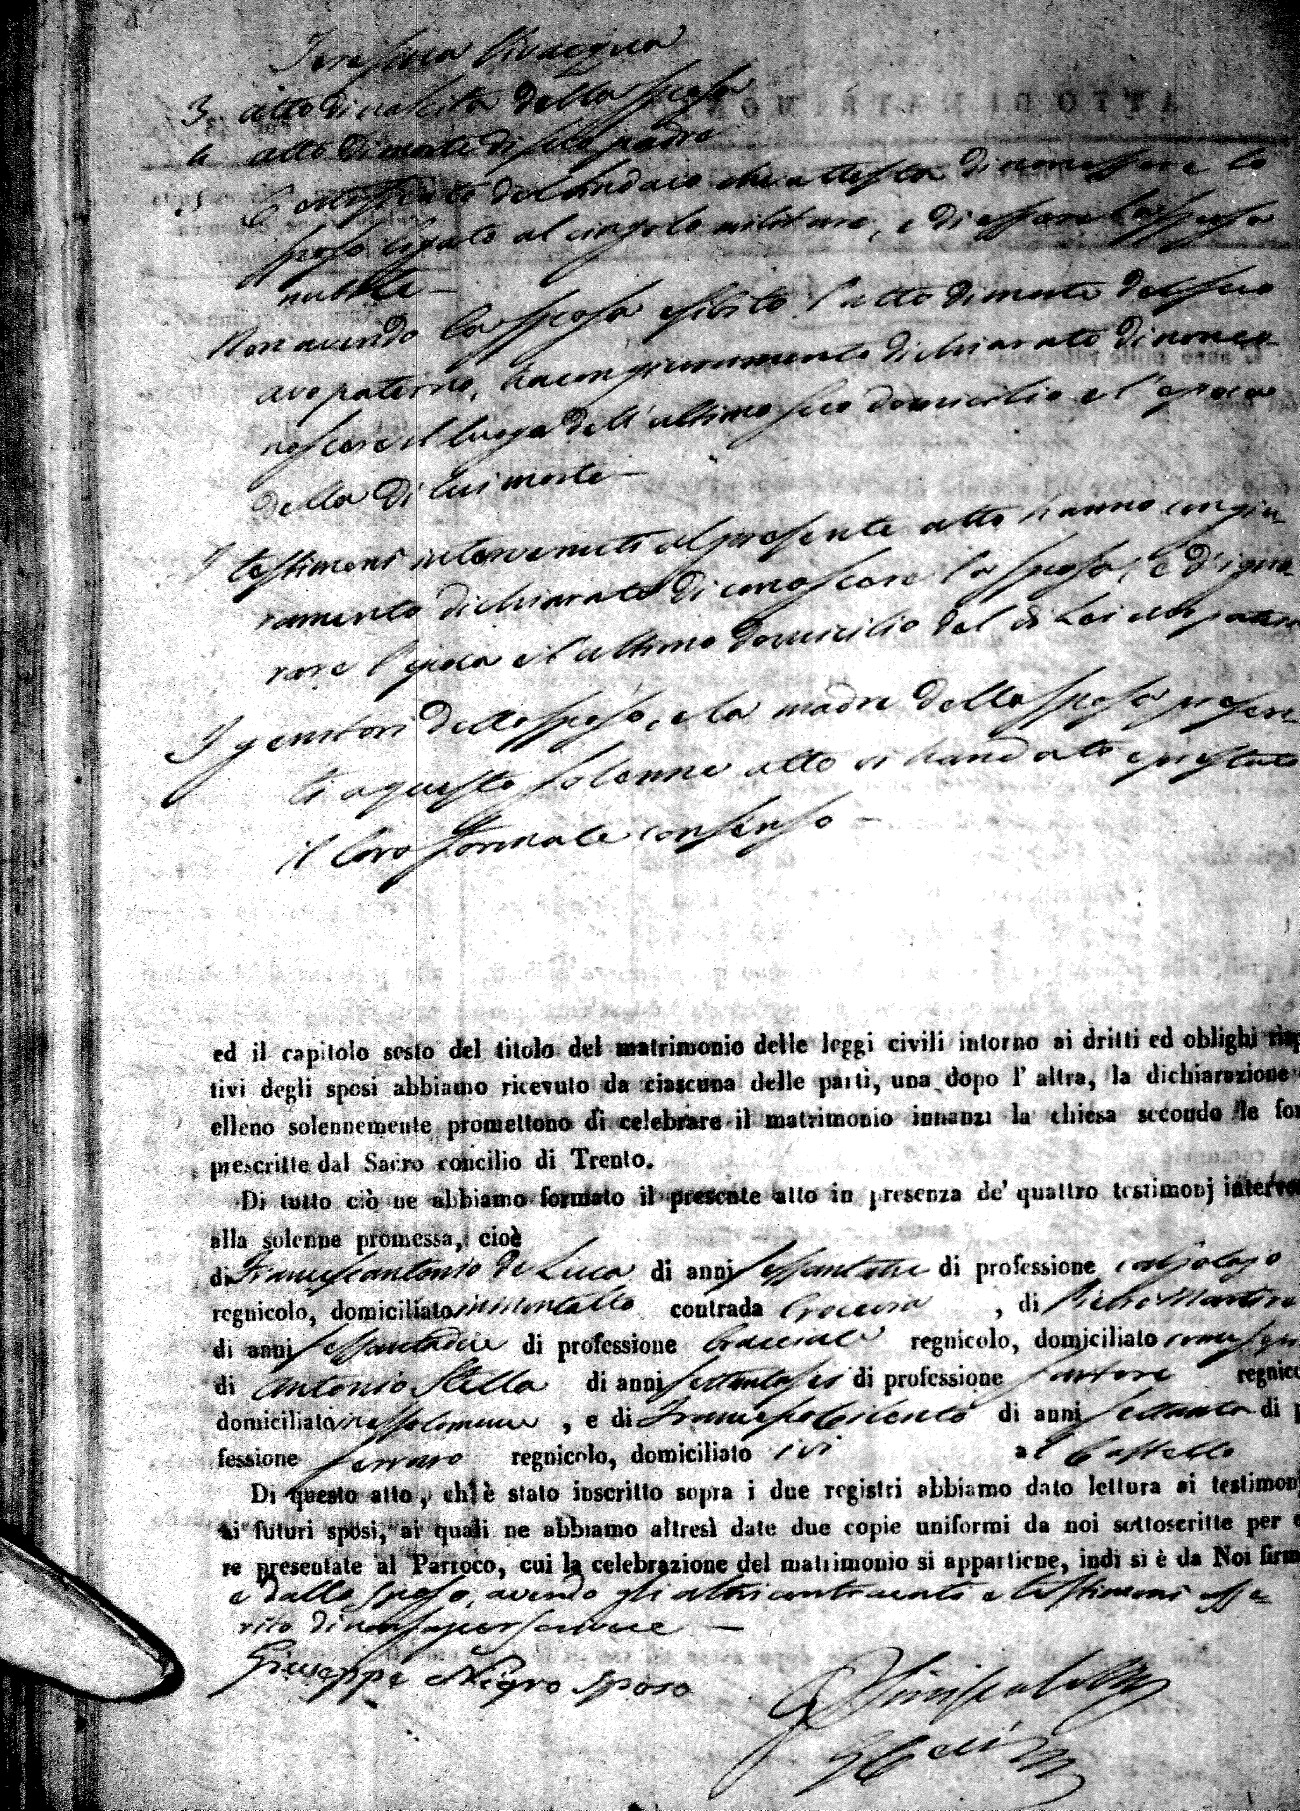 3. atto di nascita della sposa
4 atto di morte di suo padre
Certificato del Sindaco che attesta di non essere lo
sposo legato al cingolo militare, e di essere la sposa
nubile —
Non avendo la sposa esibito l'atto di morte del suo
avo paterno, ha con giuramento dichiarato di non co-
noscere il luogo dell'ultimo suo domicilio e l'epoca
della di lui morte —
I testimoni intervenuti al presente atto hanno con giu-
ramento dichiarato di conoscere la sposa, e d'igno-
rare l'epoca e l'ultimo domicilio del di Lei avo paterno
I genitori dello sposo, e la madre della sposa presen-
ti a questo solenne atto vi hanno dato e prestato
il loro formale consenso —
ed il capitolo sesto del titolo del matrimonio delle leggi civili intorno ai dritti ed oblighi risp
tivi degli sposi abbiamo ricevuto da ciascuna delle parti, una dopo l' altra, la dichiarazione
elleno solennemente promettono di celebrare il matrimonio innanzi la chiesa secondo le for
prescritte dal Sacro concilio di Trento.
Di tutto ciò ne abbiamo formato il presente atto in presenza de' quattro testimonj interve
alla solenne promessa, cioè
di Francescantonio de Luca di anni sessantatre di professione
regnicolo, domiciliato in Montalto contrada , di Pietro Martino
di anni di professione bracciale regnicolo, domiciliato come sopra
di Antonio Stella di anni settantasei di professione sartore regnico
domiciliato , e di Francesco Cilento di anni settanta di p
fessione ferraro regnicolo, domiciliato ivi al Castello
Di questo atto, ch' è stato inscritto sopra i due registri abbiamo dato lettura ai testimonj
ai futuri sposi, ai quali ne abbiamo altresì date due copie uniformi da noi sottoscritte per e
re presentate al Parroco, cui la celebrazione del matrimonio si appartiene, indi si è da Noi firm
e dallo sposo, avendo gli altri contraenti e testimoni asse-
rito di non saper scrivere —
Giuseppe Nigro sposo